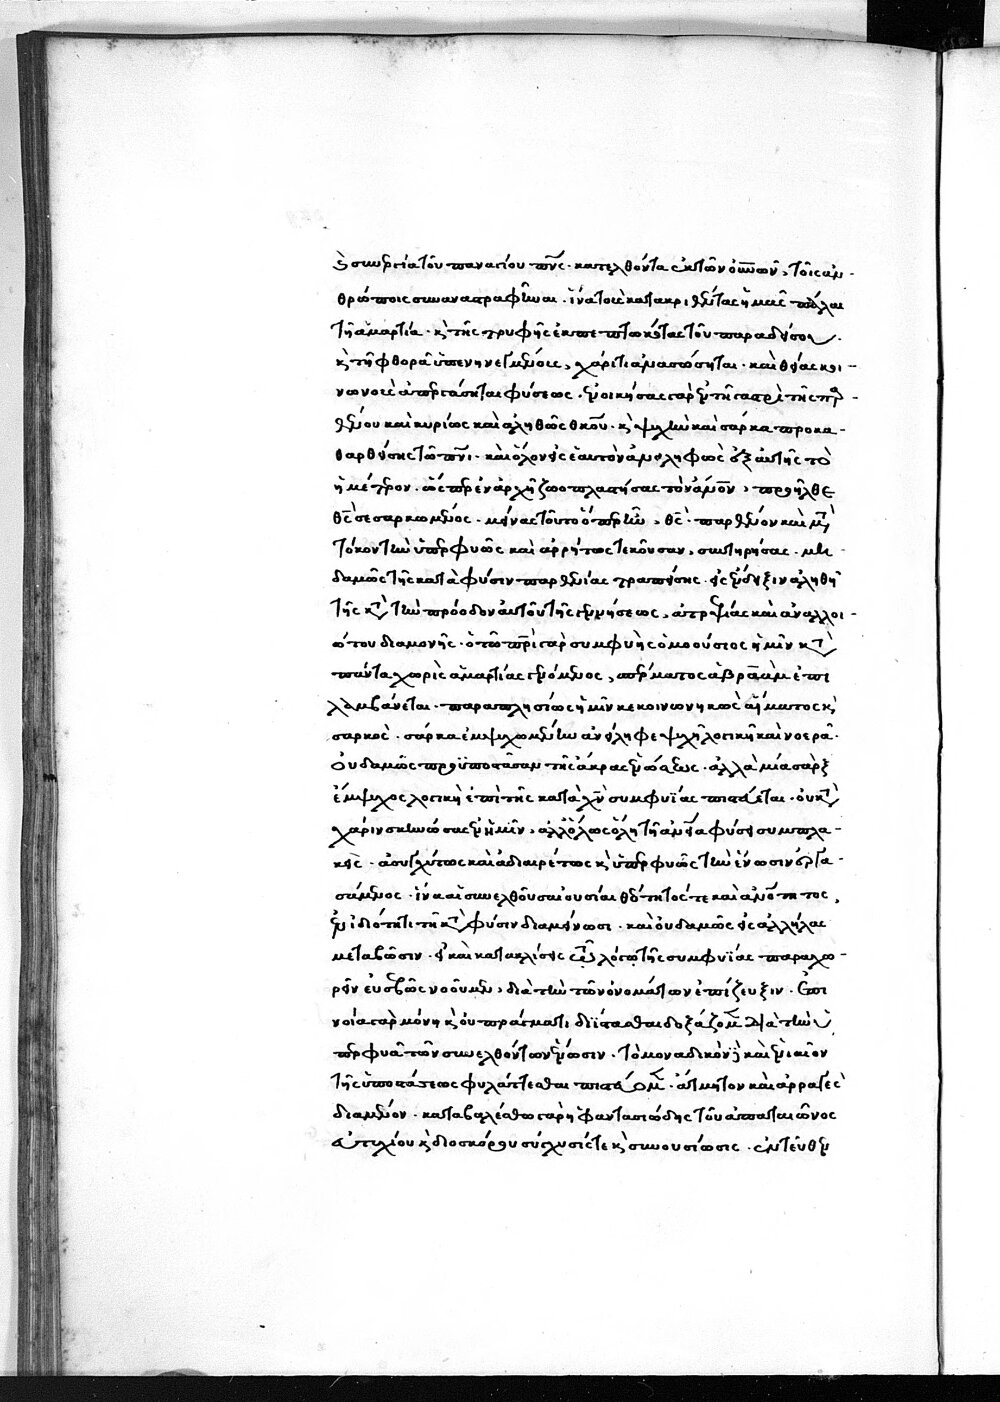 κ(αὶ) συνεργία τοῦ παναγίου πνς· κατελθόντα ἐκ τῶν οὐνῶν, τοῖς ἀν-
θρώποις συναναστραφῆναι· ἵνα τοὺς κατακριθέντας ἡμᾶς πάλαι
τῇ ἁμαρτία· κ(αὶ) τῆς τρυφῆς ἐκπεπτωκότας τοῦ παραδείσου·
κ(αὶ) τῇ φθορᾶ ὑπενηνεγμένους, χάριτι ἀνασώσηται· καὶ θείας κοι-
νωνοὺς ἀπεργάσηται φύσεως· ἐνοικήσας γὰρ ἐν τῇ γαστρὶ τῆς παρ-
θένου καὶ κυρίως καὶ ἀληθῶς θκου· κ(αὶ) ψυχὴν καὶ σάρκα προκα-
θαρθείσης τῶ πνι· καὶ ὅλον εἰς ἑαυτὸν ἀνειληφὼς ἐξ αὐτῆς τὸ
ἡμέτερον· ὥσπερ ἐν ἀρχῇ ζωοπλαστήσας τὸν ἄνον, προῆλθε
θς σεσαρκωμένος· μείνας τοῦτο ὅπερ ἦν, θς· παρθένον καὶ μετὰ
τόκον τὴν ὑπερφυῶς καὶ ἀρρήτως τεκοῦσαν, συντηρήσας· μη-
δαμῶς τῆς κατὰ φύσιν παρθενίας τραπείσης· εἰς ἔνδειξιν ἀληθῆ
τῆς κατὰ τὴν πρόοδον αὐτοῦ τῆς γεννήσεως, ἀτρεψίας καὶ ἀναλλοι-
ώτου διαμονῆς· ὁ τῶ πρὶ γὰρ συμφυὴς ὁμοούσιος ἡμῖν κατὰ
πάντα χωρὶς ἁμαρτίας γενόμενος, σπέρματος ἀβραὰμ ἐπι
λαμβάνεται· παραπλησίως ἡμῖν κεκοινωνηκὼς αἵματος κ(αὶ)
σαρκός· σάρκα ἐμψυχωμένην ἀνείληφε ψυχῇ λογικῇ καὶ νοερᾶ·
οὐδαμῶς προϋποστᾶσαν τῆς ἄκρας ἑνώσεως· ἀλλὰ μία σὰρξ
ἔμψυχος λογικὴ ἐπὶ τῆς κατὰ χν συμφυΐας πιστεύεται· οὐ κατὰ
χάριν σκηνώσας ἐν ἡμῖν, ἀλλ' ὅλως ὅλη τῇ ἀνεία φύσει συμπλα-
κεὶς· ἀσυγχύτως καὶ ἀδιαιρέτως κ(αὶ) ὑπερφυῶς τὴν ἕνωσιν ἐργα-
σάμενος· ἵνα αἱ συνελθοῦσαι οὐσίαι θεότητός τε καὶ ἀνότητος,
ἐν ἰδιότητι τῇ κατὰ φύσιν διαμείνωσι· καὶ οὐδαμῶς εἰς ἀλλήλας
μεταβῶσιν· εἰ καὶ κατακλίσεις λόγω τῆς συμφυΐας παραχω-
ρεῖν εὐσεβῶς νοοῦμεν, διὰ τὴν τῶν ὀνομάτων ἐπίζευξιν· ἐπι
νοία γὰρ μόνη κ(αὶ) οὐ πράγματι διΐστασθαι δοξάζομεν διὰ τὴν ὑ-
περφυᾶ τῶν συνελθόντων ἕνωσιν· τὸ μοναδικόν κ(αὶ) καὶ ἑνιαῖον
τῆς ὑποστάσεως φυλάττεσθαι πιστεύομεν· ἄτμητον καὶ ἀρραγὲς
διαμένον· καταβαλέσθω γὰρ ἡ φαντασιώδης τοῦ ἀπαταιῶνος
εὐτυχίου κ(αὶ) διοσκόρου σύγχυσίς τε κ(αὶ) συνουσίωσις· ἐντεῦθεν